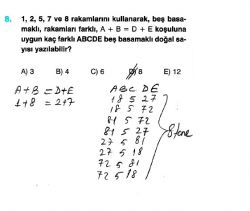 8. 1, 2, 5, 7 ve 8 rakamlarını kullanarak, beş basa-
maklı, rakamları farklı, A + B = D + E koşuluna
uygun kaç farklı ABCDE beş basamaklı doğal sa-
yısı yazılabilir?
A) 3 B) 4 C) 6 D) 8 E) 12
A+B = D+E
1+8 = 2+7
ABC DE
18 5 27
18 5 72
81 5 72
81 5 27
27 5 81
27 5 18
72 5 81
72 5 18
8 tane